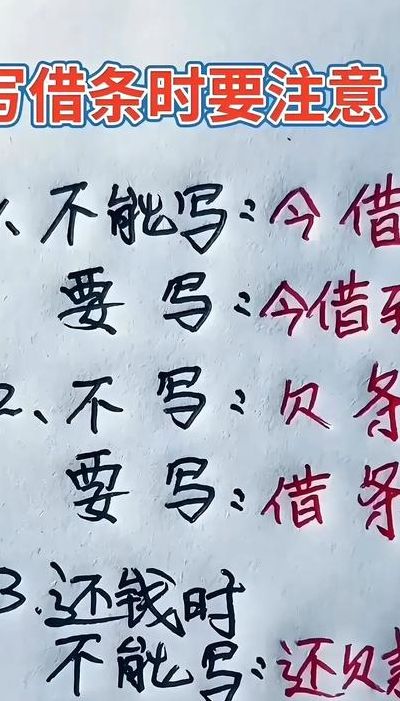 写借条时要注意
1、不能写:今借
要写:今借到
2、不写:欠条
要写:借条
3.还钱时
不能写:还欠款